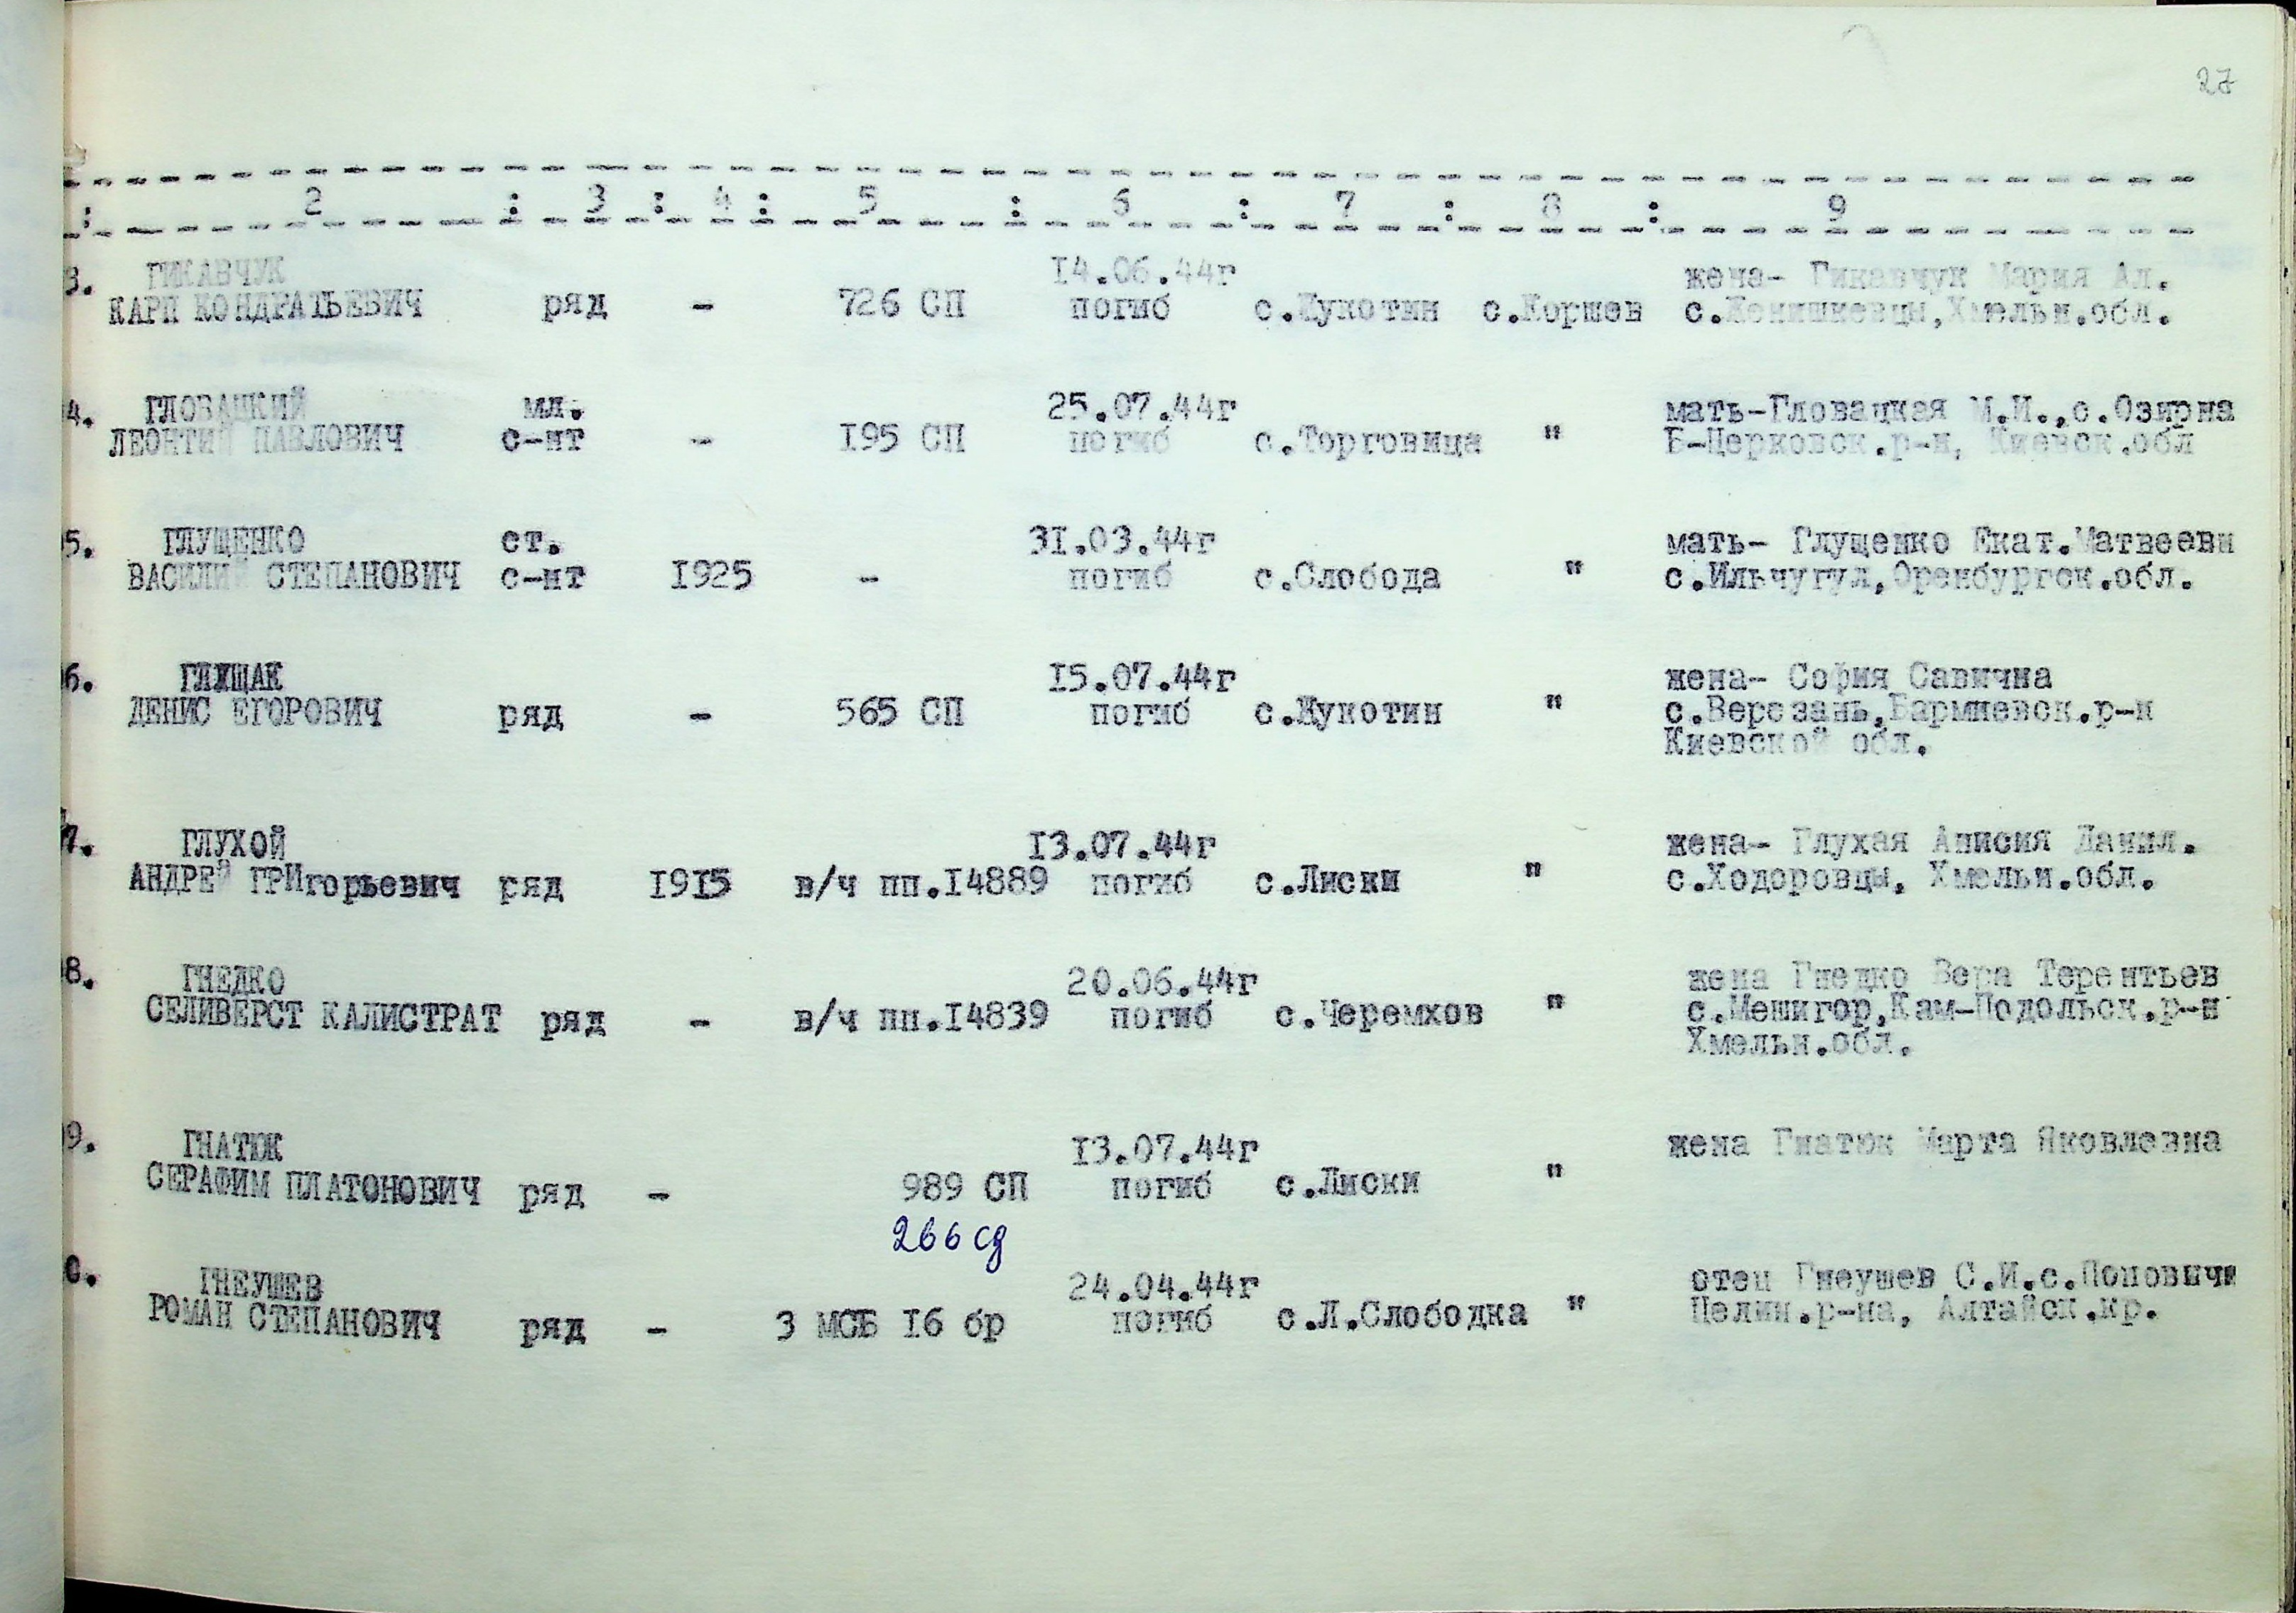 27
: 2 : 3 : 4 : 5 : 6 : 7 : 8 : 9
3. ГИКАВЧУК 14.06.44г жена- Гикавчук Мария Ал.
КАРП КОНДРАТЬЕВИЧ ряд - 726 СП погиб с.Жукотин с.Коршев с.Женишковцы,Хмельн.обл.
4. ГЛОВАЦКИЙ мл. 25.07.44г мать-Гловацкая М.И.,с.Озирна
ЛЕОНТИЙ ПАВЛОВИЧ с-нт - 195 СП погиб с.Торговица " Б-Церковск.р-н, Киевск.обл
5. ГЛУЩЕНКО ст. 31.03.44г мать- Глущенко Екат.Матвеевн
ВАСИЛИЙ СТЕПАНОВИЧ с-нт 1925 - погиб с.Слобода " с.Ильчугул,Оренбургск.обл.
6. ГЛУЩАК 15.07.44г жена- София Савична
ДЕНИС ЕГОРОВИЧ ряд - 565 СП погиб с.Жукотин " с.Березань,Бармиевск.р-н
Киевской обл.
7. ГЛУХОЙ 13.07.44г жена- Глухая Анисия Данил.
АНДРЕЙ ГРИгорьевич ряд 1915 в/ч пп.14889 погиб с.Лиски " с.Ходоровцы, Хмельн.обл.
8. ГНЕДКО 20.06.44г жена Гнедко Вера Терентьев
СЕЛИВЕРСТ КАЛИСТРАТ ряд - в/ч пп.14839 погиб с.Черемхов " с.Мешигор,Кам-Подольск.р-н
Хмельн.обл.
9. ГНАТЮК 13.07.44г жена Гнатюк Марта Яковлевна
СЕРАФИМ ПЛАТОНОВИЧ ряд - 989 СП погиб с.Лиски "
266 сд
0. ГНЕУШЕВ 24.04.44г отец Гнеушев С.И.с.Поповичи
РОМАН СТЕПАНОВИЧ ряд - 3 МСБ 16 бр погиб с.Л.Слободка " Целин.р-на, Алтайск.кр.